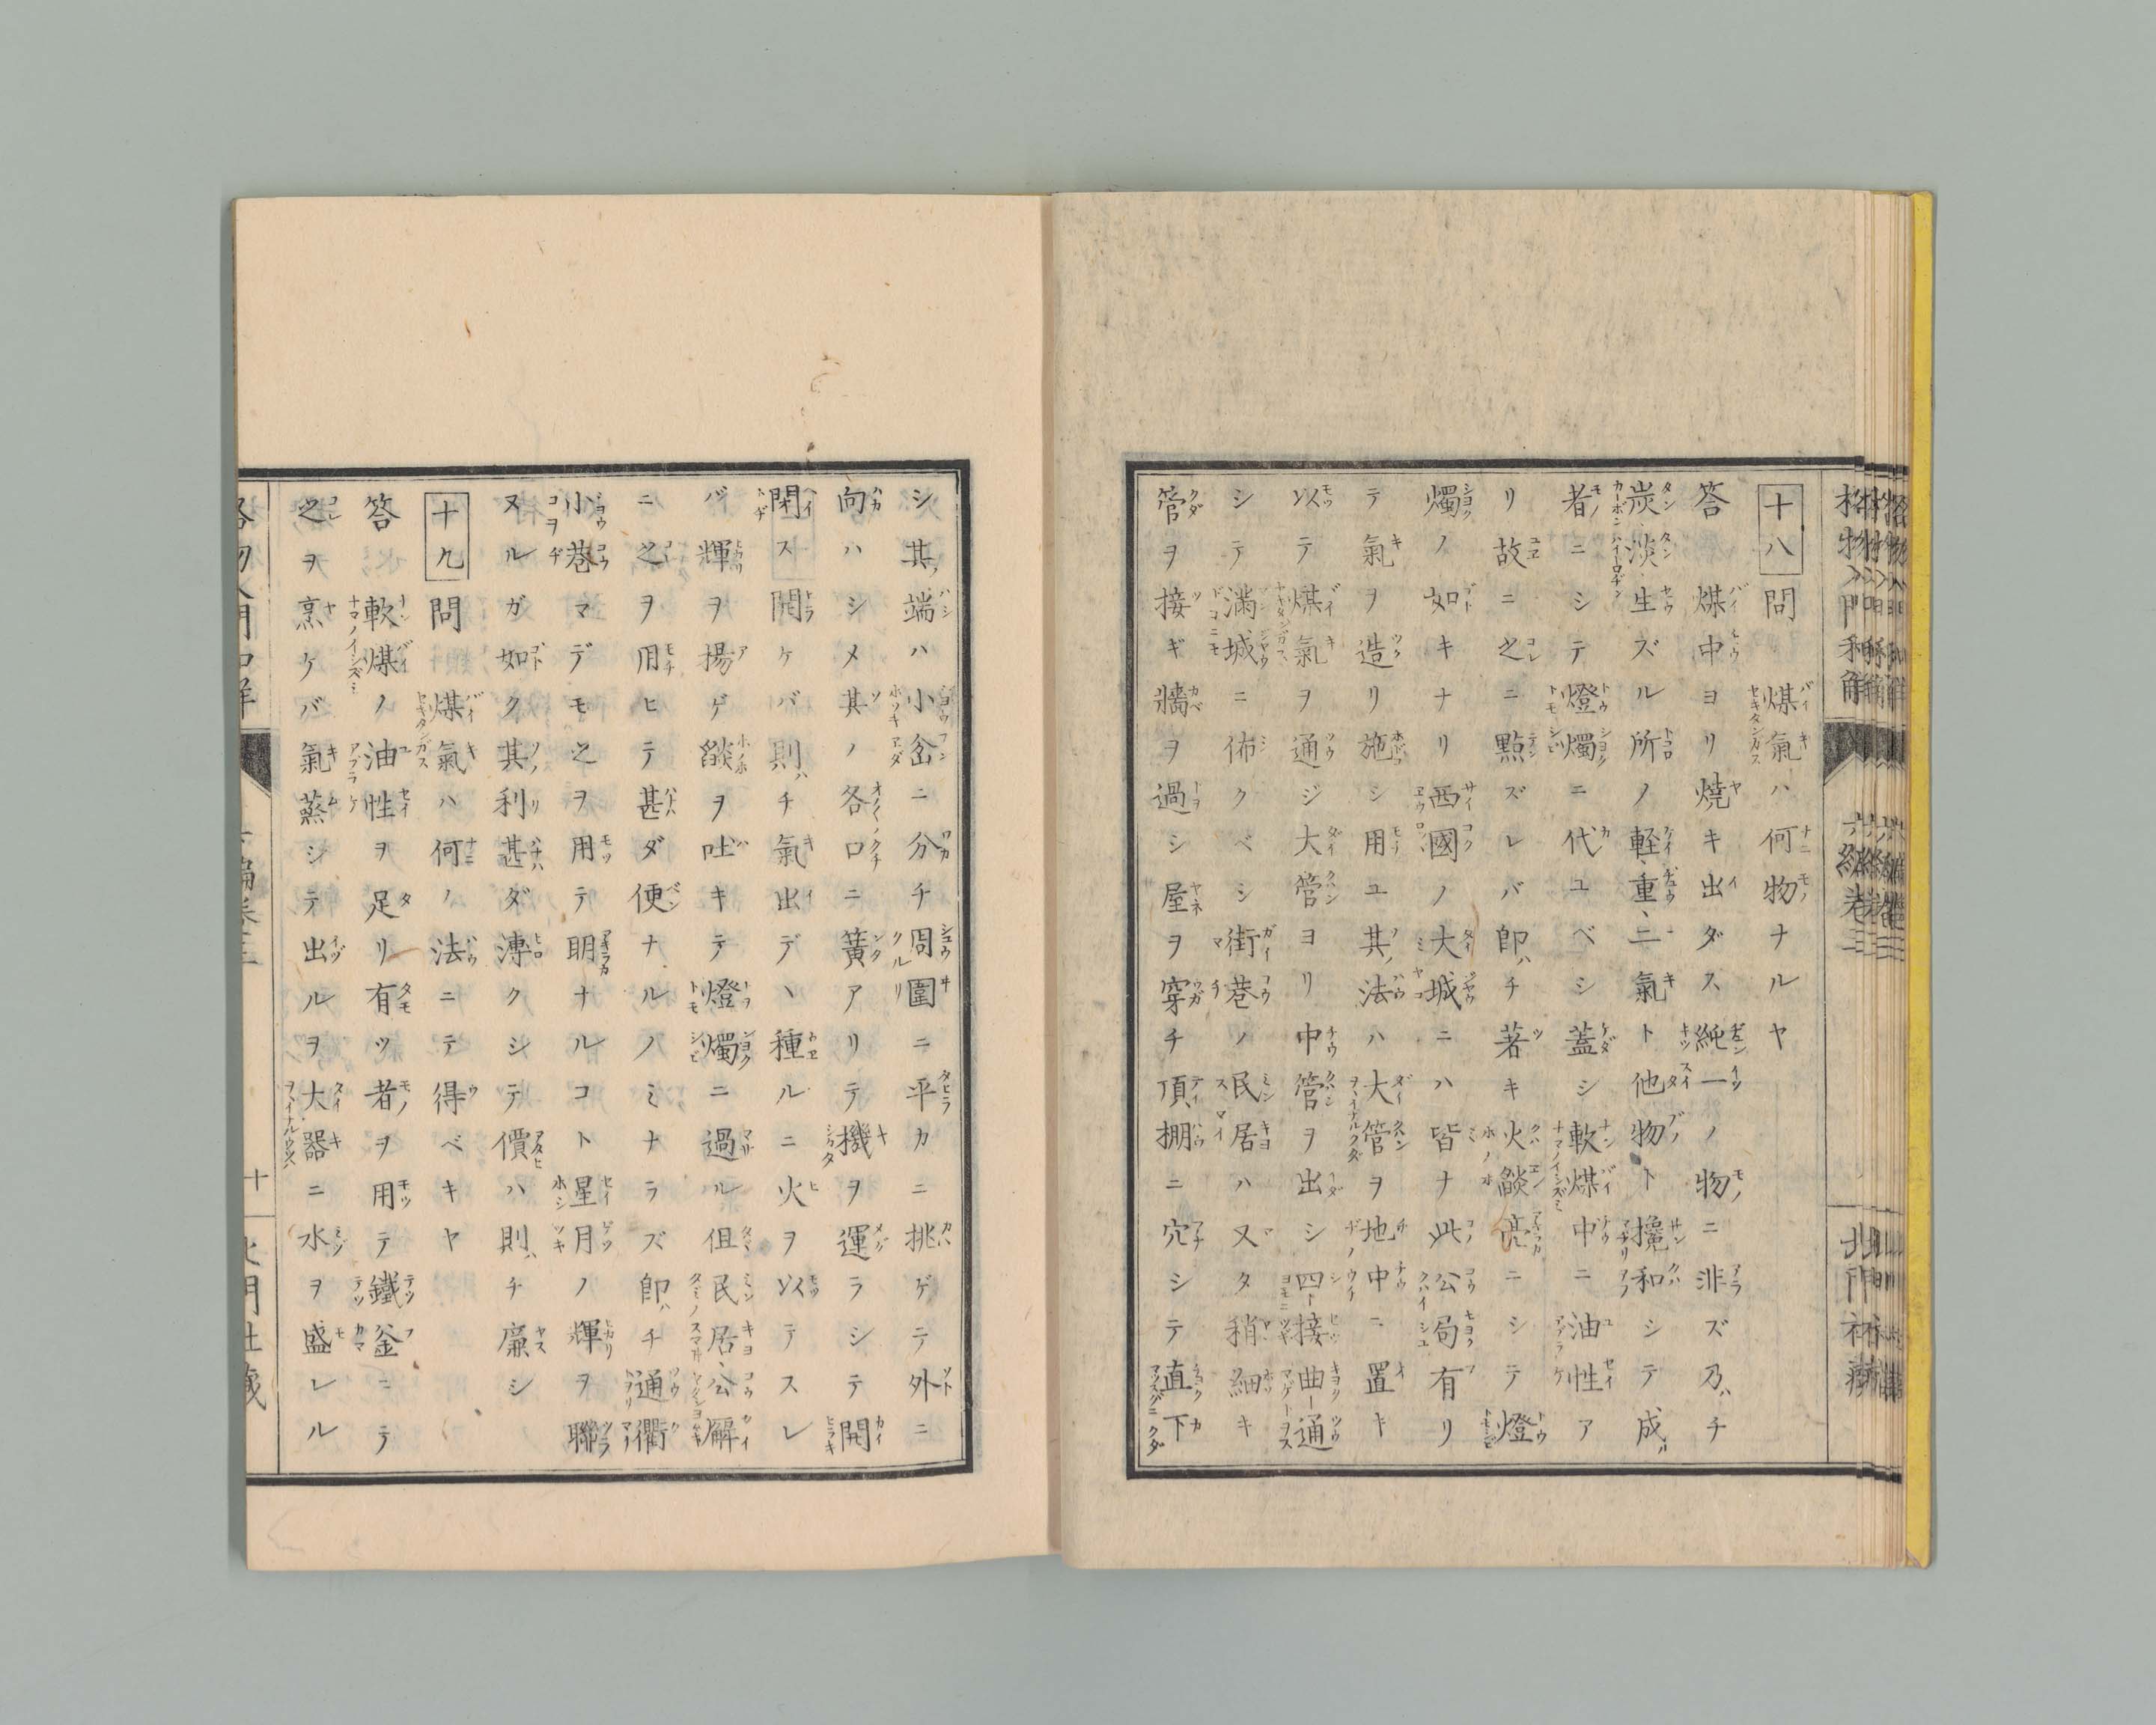 十八 問 煤氣ハ何物ナルヤ
答 煤中ヨリ燒キ出ダス純一ノ物ニ非ズ乃チ
炭淡生ズル所ノ軽重二氣ト他物ト攙和シテ成ル
者ニシテ燈燭ニ代ユベシ蓋シ軟煤中ニ油性ア
リ故ニ之ニ點ズレバ即チ著キ火燄亮ニシテ燈
燭ノ如キナリ西國ノ大城ニハ皆ナ此公局有リ
テ氣ヲ造リ施シ用ユ其法ハ大管ヲ地中ニ置キ
以テ煤氣ヲ通ジ大管ヨリ中管ヲ出シ四接曲通
シテ滿城ニ佈クベシ街巷ノ民居ハ又タ稍細キ
管ヲ接ギ牆ヲ過シ屋ヲ穿チ頂棚ニ穴シテ直下
シ其端ハ小岔ニ分チ周圍ニ平カニ挑ゲテ外ニ
向ハシメ其ノ各口ニ簧アリテ機ヲ運ラシテ開
閉ス開ケバ則チ氣出デヽ種ルニ火ヲ以テスレ
バ輝ヲ揚ゲ燄ヲ吐キテ燈燭ニ過ル但民居公廨
ニ之ヲ用ヒテ甚ダ便ナルノミナラズ即チ通衢
小巷マデモ之ヲ用テ明ナルコト星月ノ輝ヲ聯
ヌルガ如ク其利甚ダ溥クシテ價ハ則チ廉シ
十九 問 煤氣ハ何ノ法ニテ得ベキヤ
答 軟煤ノ油性ヲ足リ有ツ者ヲ用テ鐵釜ニテ
之ヲ烹ケバ氣蒸シテ出ルヲ大器ニ水ヲ盛レル